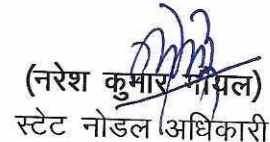 (नरेश कुमार गोयल)
स्टेट नोडल अधिकारी